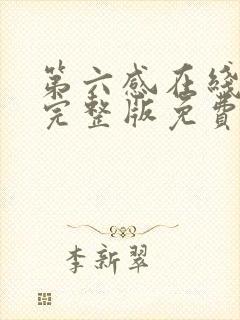 第六感在线
完整版免費
李新翠